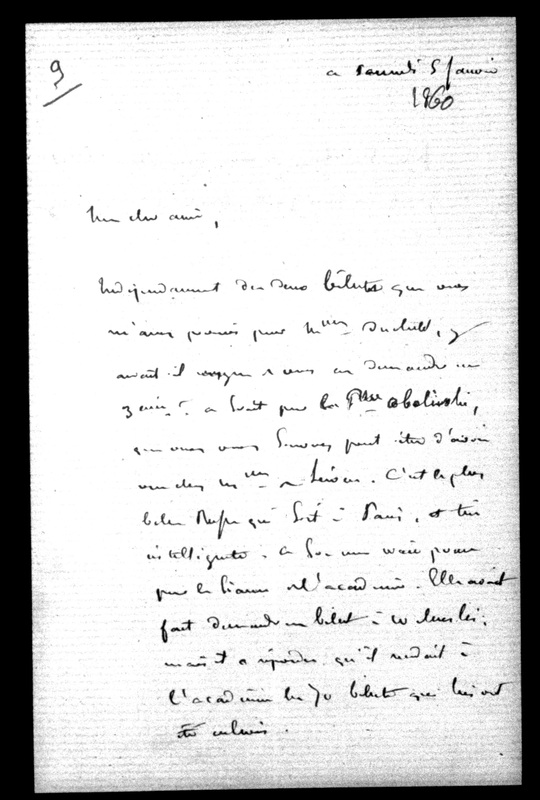 9
ce samedi 5 Janvier
1860
Mon cher ami,
Indépendamment des deux billets que vous
m'avez promis pour Mmes Duchatel, y
aurait il moyen à vous en demander un
3ème ? ce serait pour la Psse Obolinski,
que vous vous souvenez peut être d'avoir
vue chez Mme de . C'est la plus
belle Russe qui soit à Paris, et très
intelligente. Ce sera une
pour la séance de l'académie. Elle avait
fait demander un billet à
mais il a répondu qu'il rendait à
l'académie les 70 billets qui lui ont
été